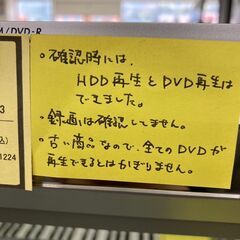 M/DVD-R
・確認時には、
HDD再生とDVD再生は
できました。
・録画は確認してません。
・古い商品なので、全てのDVDが
再生できるとはかぎりません。
3
込)
1224